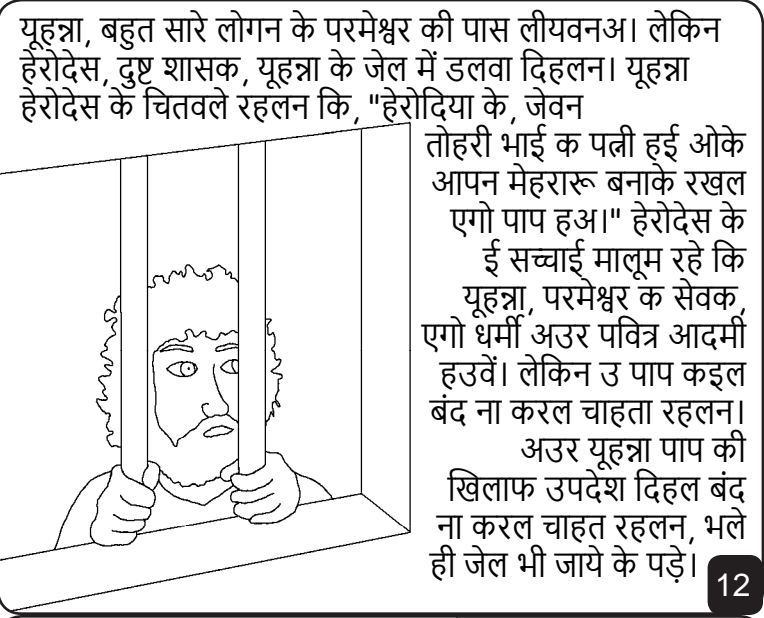 यूहन्ना, बहुत सारे लोगन के परमेश्वर की पास लीयवनअ। लेकिन
हेरोदेस, दुष्ट शासक, यूहन्ना के जेल में डलवा दिहलन। यूहन्ना
हेरोदेस के चितवले रहलन कि, "हेरोदिया के, जेवन
तोहरी भाई क पत्नी हई ओके
आपन मेहरारू बनाके रखल
एगो पाप हअ।" हेरोदेस के
ई सच्चाई मालूम रहे कि
यूहन्ना, परमेश्वर क सेवक,
एगो धर्मी अउर पवित्र आदमी
हउवें। लेकिन उ पाप कइल
बंद ना करल चाहता रहलन।
अउर यूहन्ना पाप की
खिलाफ उपदेश दिहल बंद
ना करल चाहत रहलन, भले
ही जेल भी जाये के पड़े।
12